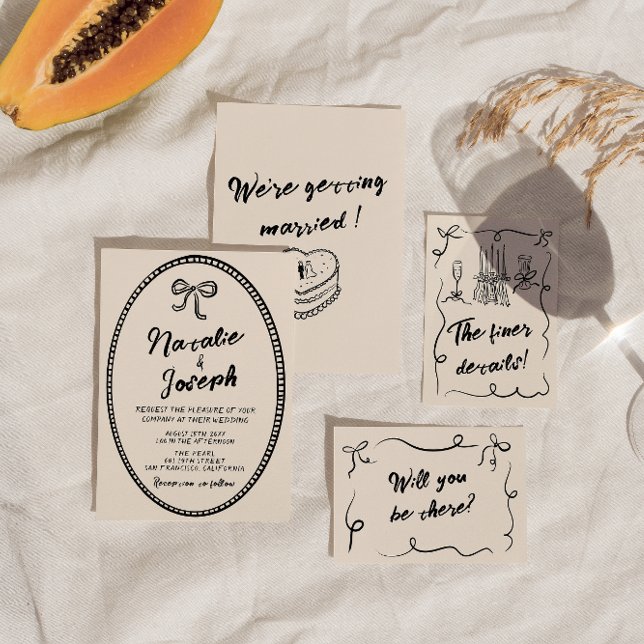 We're getting
married!
Natalie
&
Joseph
REQUEST THE PLEASURE OF YOUR
COMPANY AT THEIR WEDDING
AUGUST 15TH 20XX
1:00 IN THE AFTERNOON
THE PEARL
601 19TH STREET
SAN FRANCISCO, CALIFORNIA
Reception to follow
The finer
details!
Will you
be there?